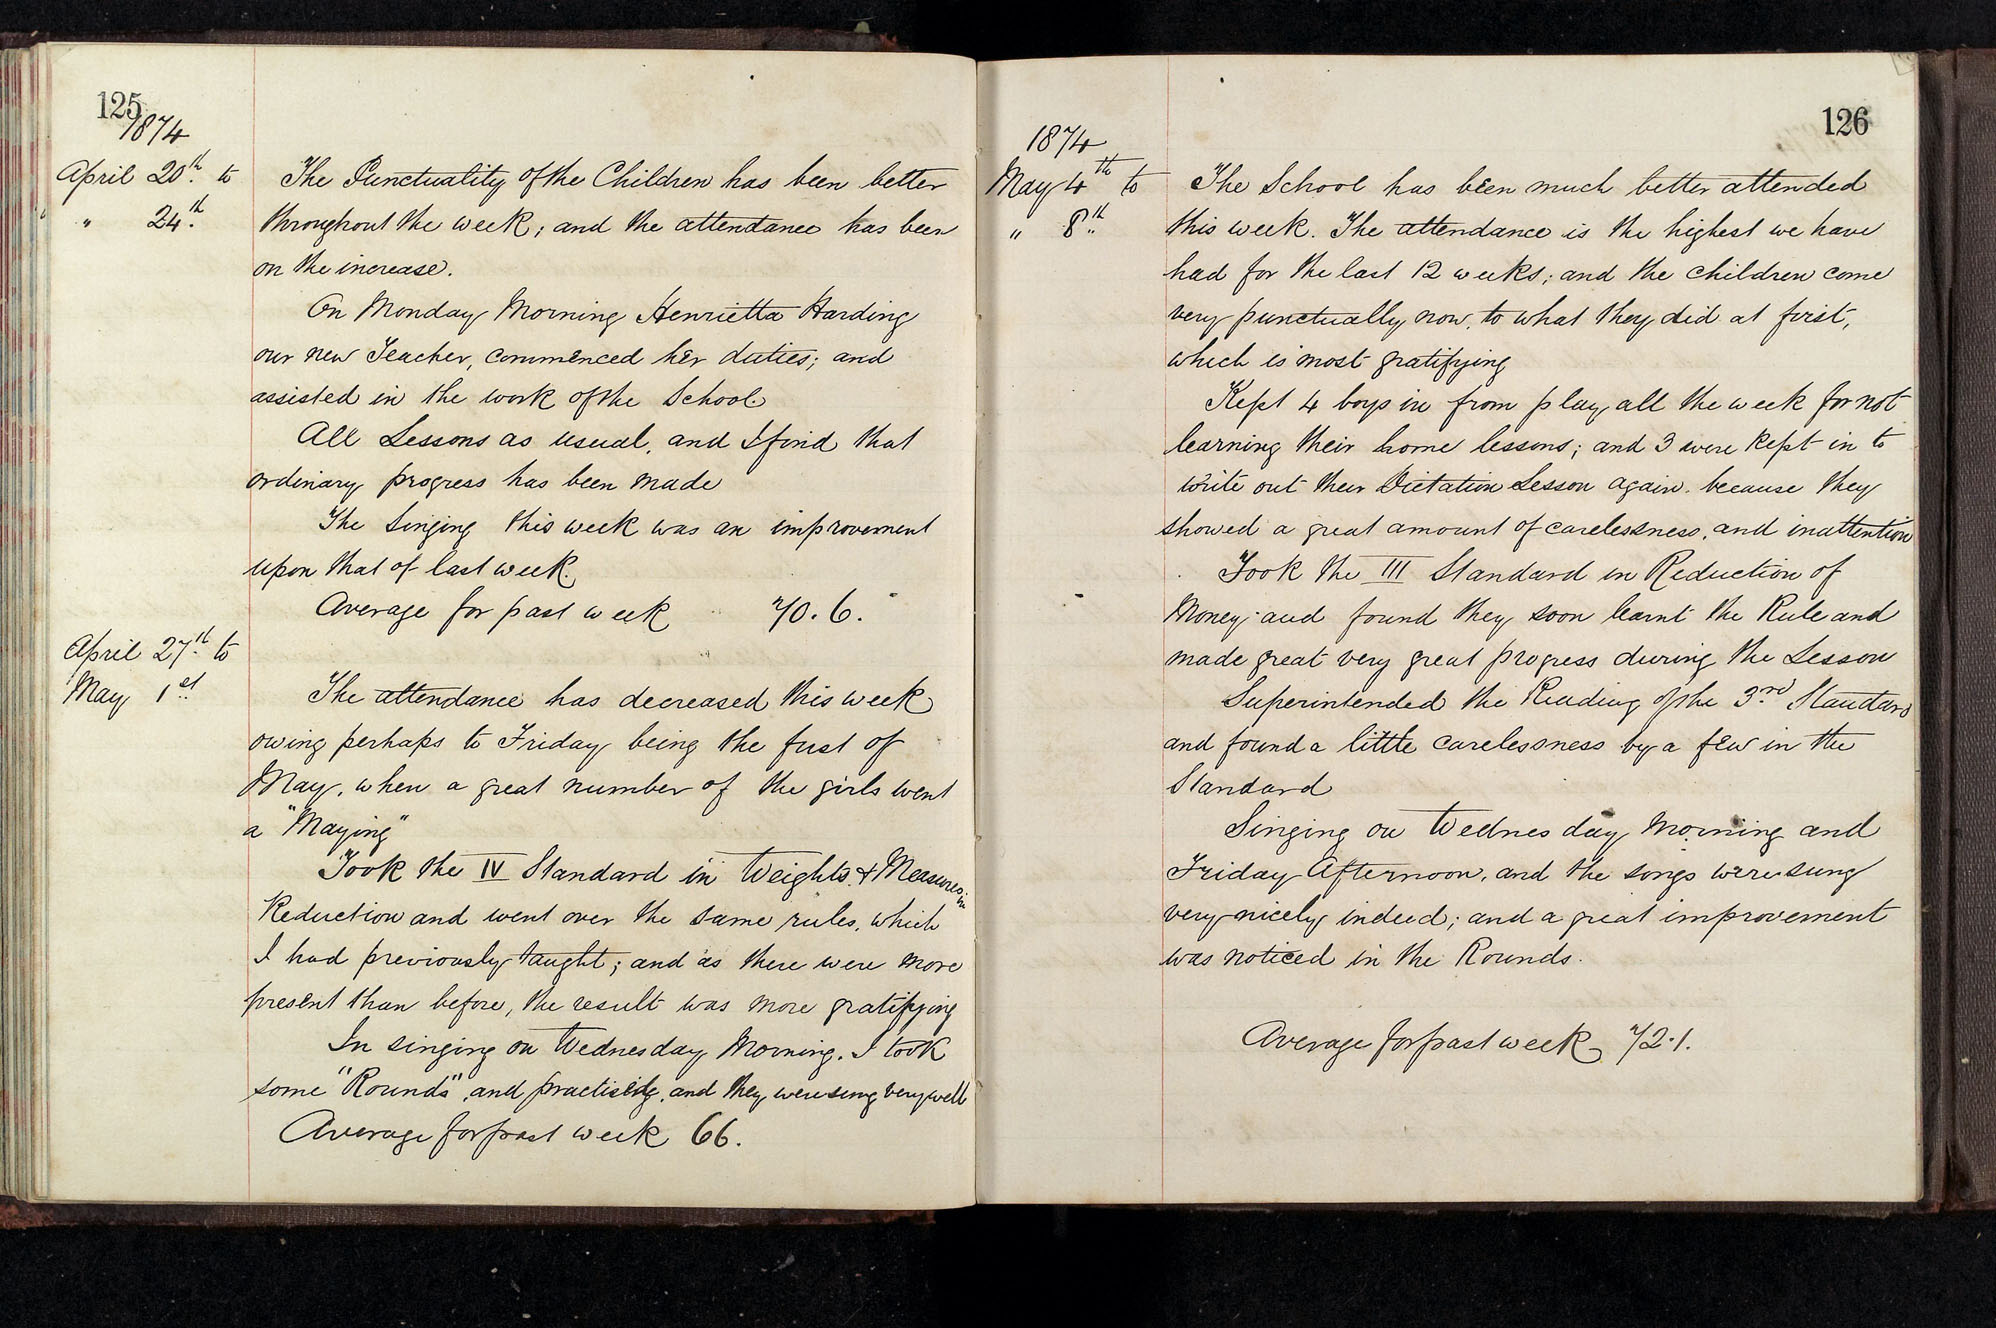 125
1874
April 20th. to
" 24.th
The Punctuality of the Children has been better
throughout the week; and the attendance has been
on the increase.
On Monday Morning Henrietta Harding
our new Teacher, commenced her duties; and
assisted in the work of the School.
All Lessons as usual, and I find that
ordinary progress has been made
The Singing this week was an improvement
upon that of last week.
Average for past week 70.6.
April 27th. to
May 1st.
The attendance has decreased this week
owing perhaps to Friday being the first of
May, when a great number of the girls went
a "Maying"
Took the IV Standard in Weights & Measures in
Reduction and went over the same rules, which
I had previously taught; and as there were more
present than before, the result was more gratifying
In singing on Wednesday Morning. I took
some "Rounds", and practised, and they were sung very well
Average for past week 66.
126
1874
May 4th to
" 8th.
The School has been much better attended
this week. The attendance is the highest we have
had for the last 12 weeks; and the children come
very punctually now, to what they did at first,
which is most gratifying
Kept 4 boys in from play all the week for not
learning their home lessons; and 3 were kept in to
write out their Dictation Lesson again, because they
showed a great amount of carelessness, and inattention
Took the III Standard in Reduction of
Money and found they soon learnt the Rule and
made great very great progress during the Lesson
Superintended the Reading of the 3rd. Standard
and found a little carelessness by a few in the
Standard
Singing on Wednesday Morning and
Friday Afternoon, and the songs were sung
very nicely indeed; and a great improvement
was noticed in the Rounds.
Average for past week 72.1.